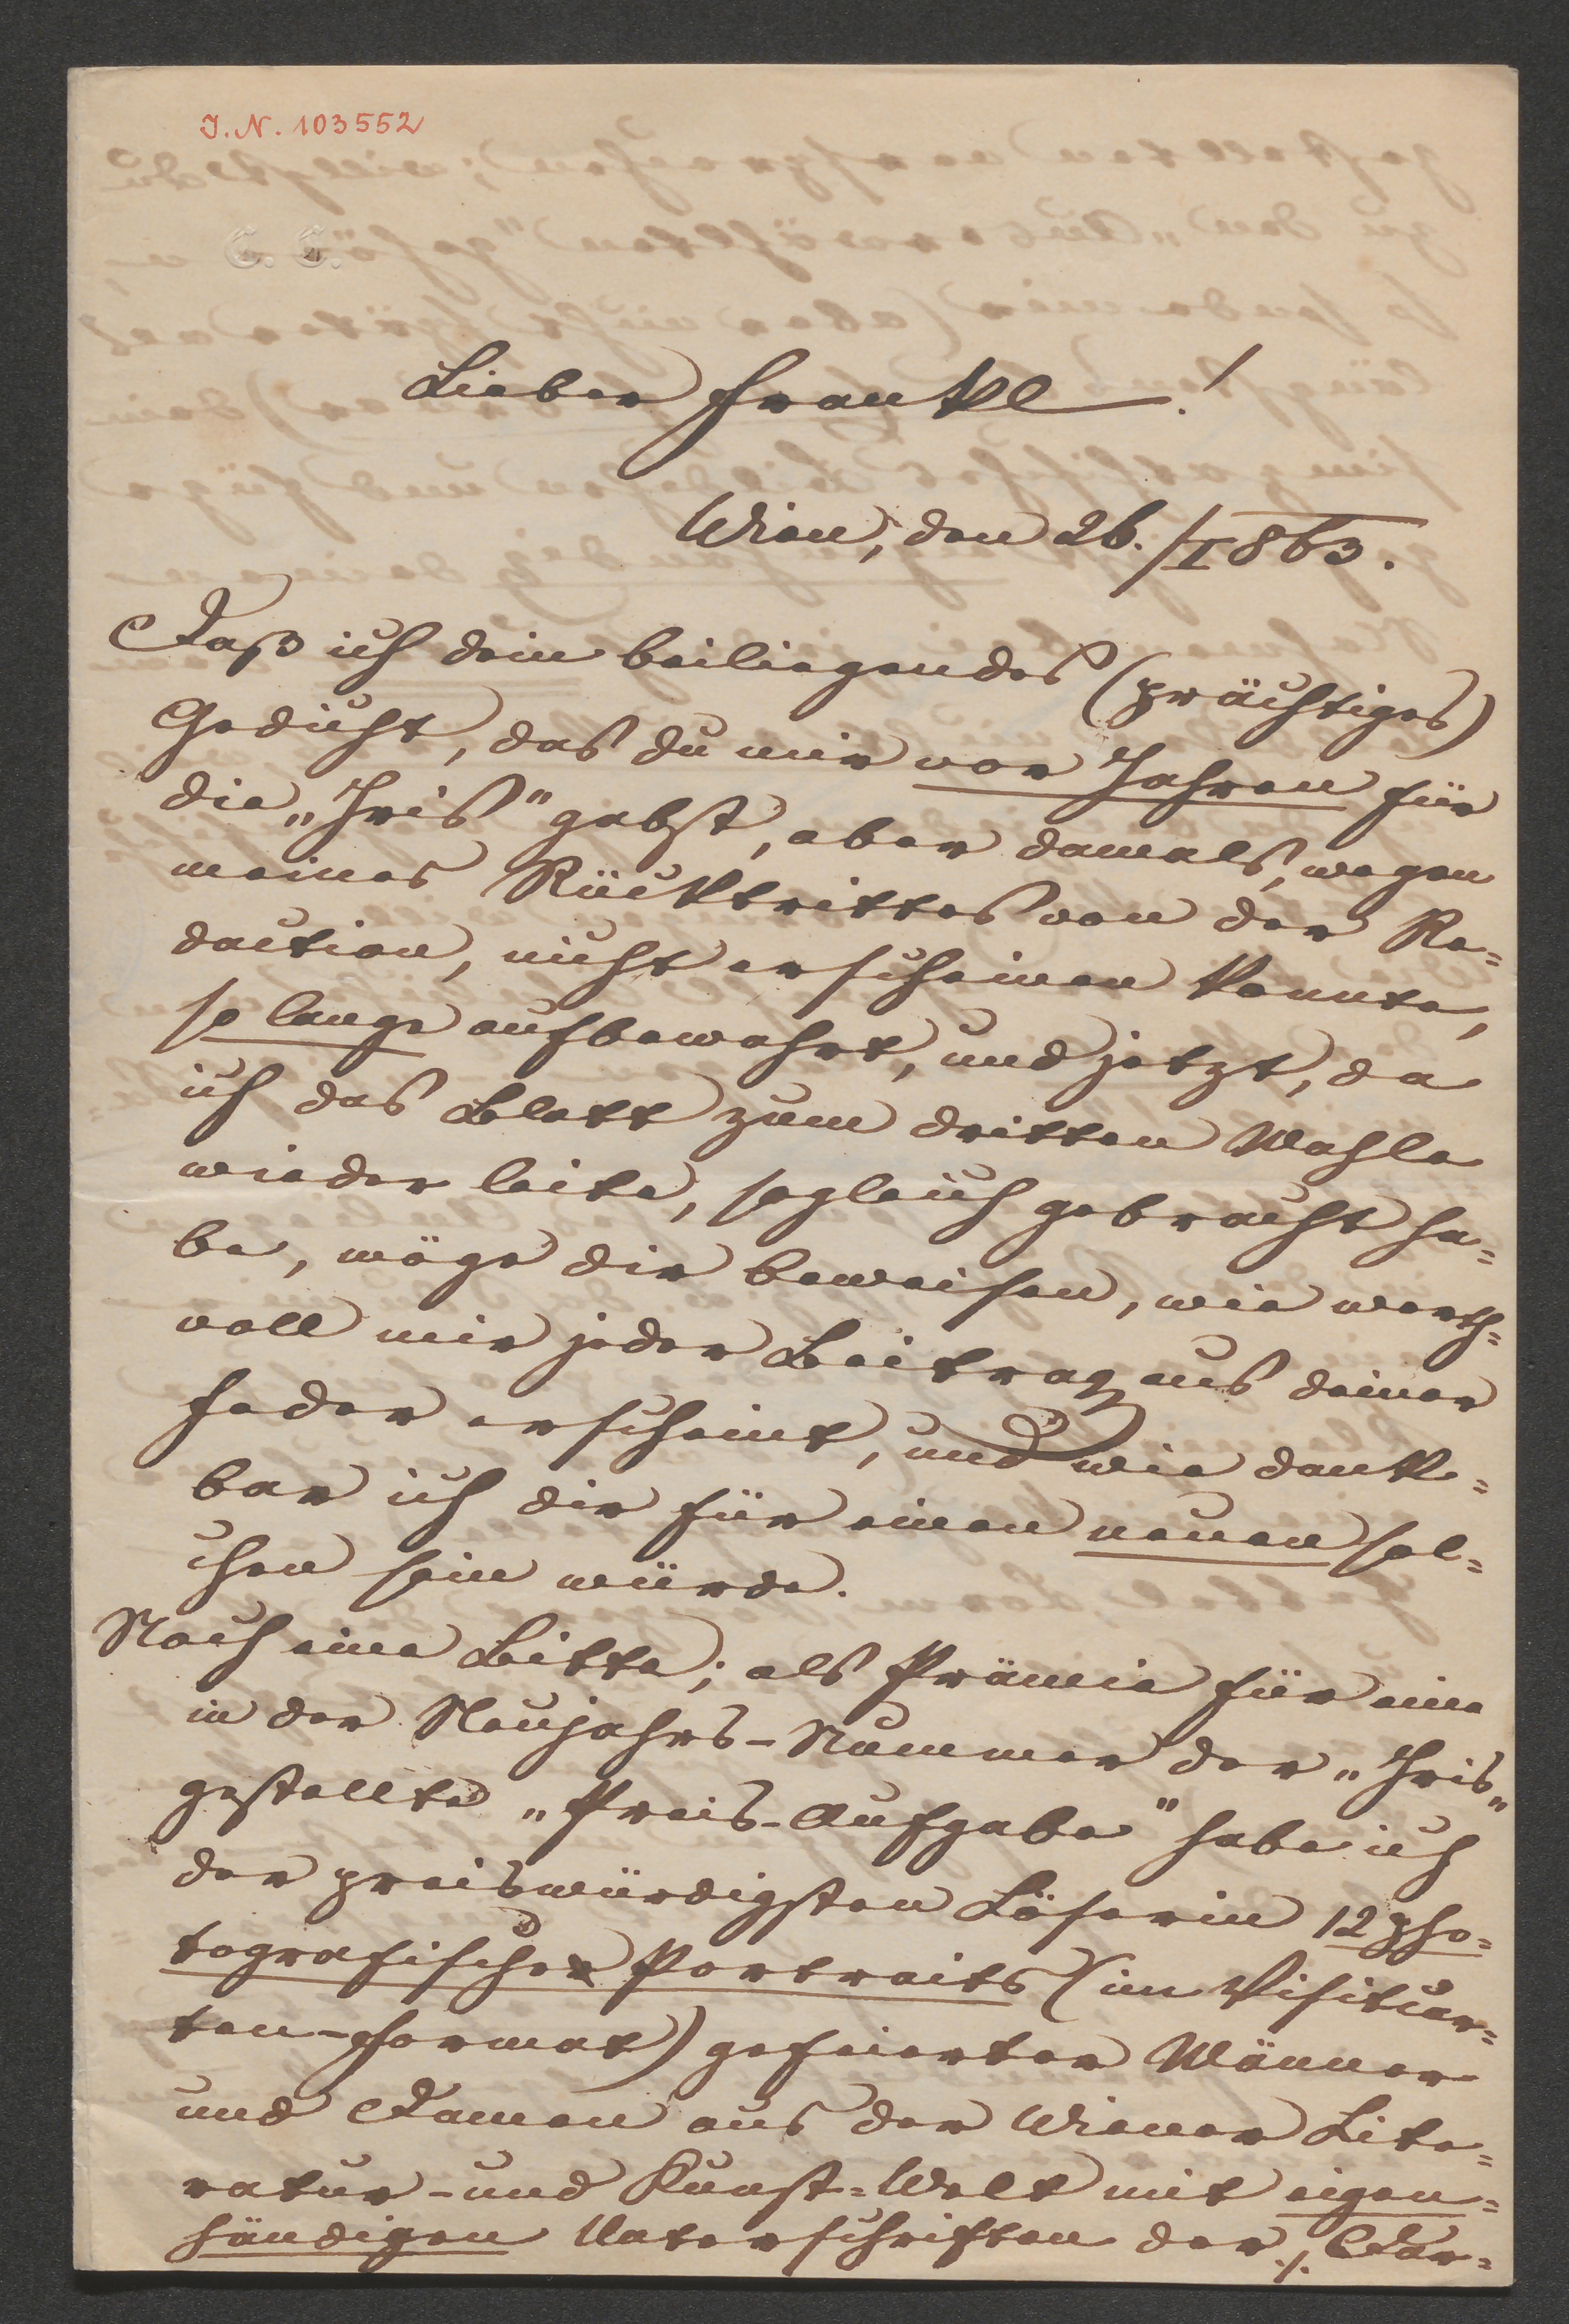 I.N. 103552
C. C.
Lieber Frankl!
Wien, den 26./I 863.
Daß ich dein beiliegendes (prächtiges)
Gedicht, das du mir vor Jahren für
die „Iris" gabst, aber damals, wegen
meines Rücktrittes von der Re=
daction, nicht erscheinen konnte,
so lange aufbewahrt, und jetzt, da
ich das Blatt zum dritten Mahle
wieder leite, sogleich gebracht ha=
be, möge dir beweisen, wie werth=
voll mir jeder Beitrag aus deiner
Feder erscheint, und wie dank=
bar ich dir für einen neuen sol=
chen sein würde.
Noch eine Bitte; als Prämie für eine
in der Neujahrs-Nummer der „Iris"
gestellte „Preis-Aufgabe" habe ich
der preiswürdigsten Löserin 12 pho=
tografische Portraits (im Visitkar=
ten-Format) gefeierter Männer
und Damen aus der Wiener Lite=
ratur- und Kunst=Welt mit eigen=
händigen Unterschriften der ./. Dar=